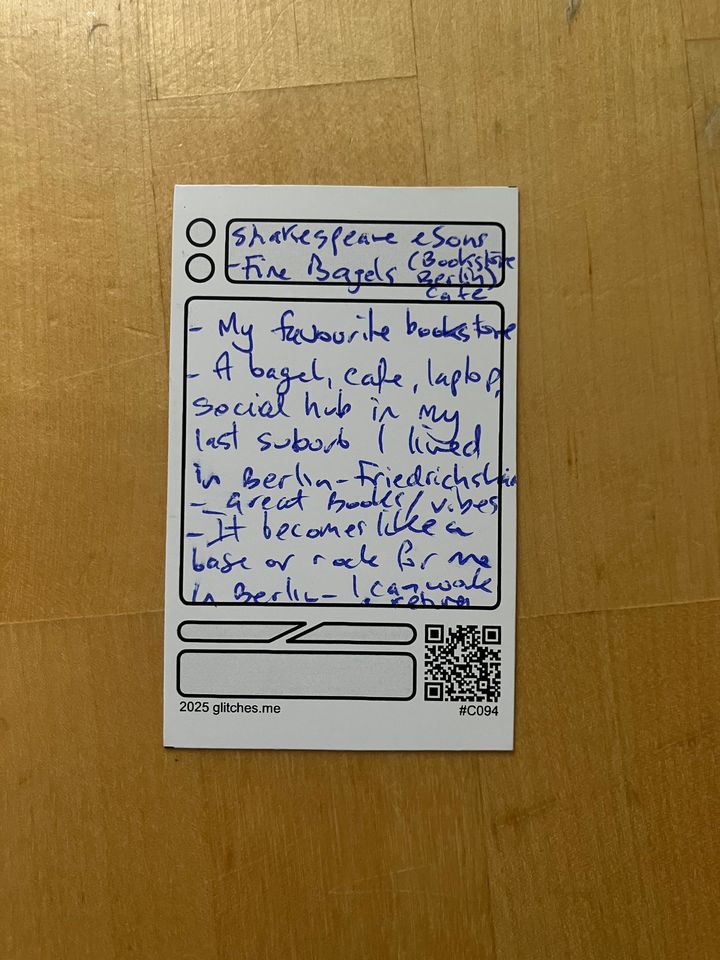 Shakespeare & Sons
- Fine Bagels (Bookstore
Berlin)
cafe
- My favourite bookstore
- A bagel, cafe, laptop,
social hub in my
last suburb I lived
in Berlin-Friedrichshain
- Great Books/vibes
- It becomes like a
base or rock for me
In Berlin- I can work
& return
2025 glitches.me
#C094